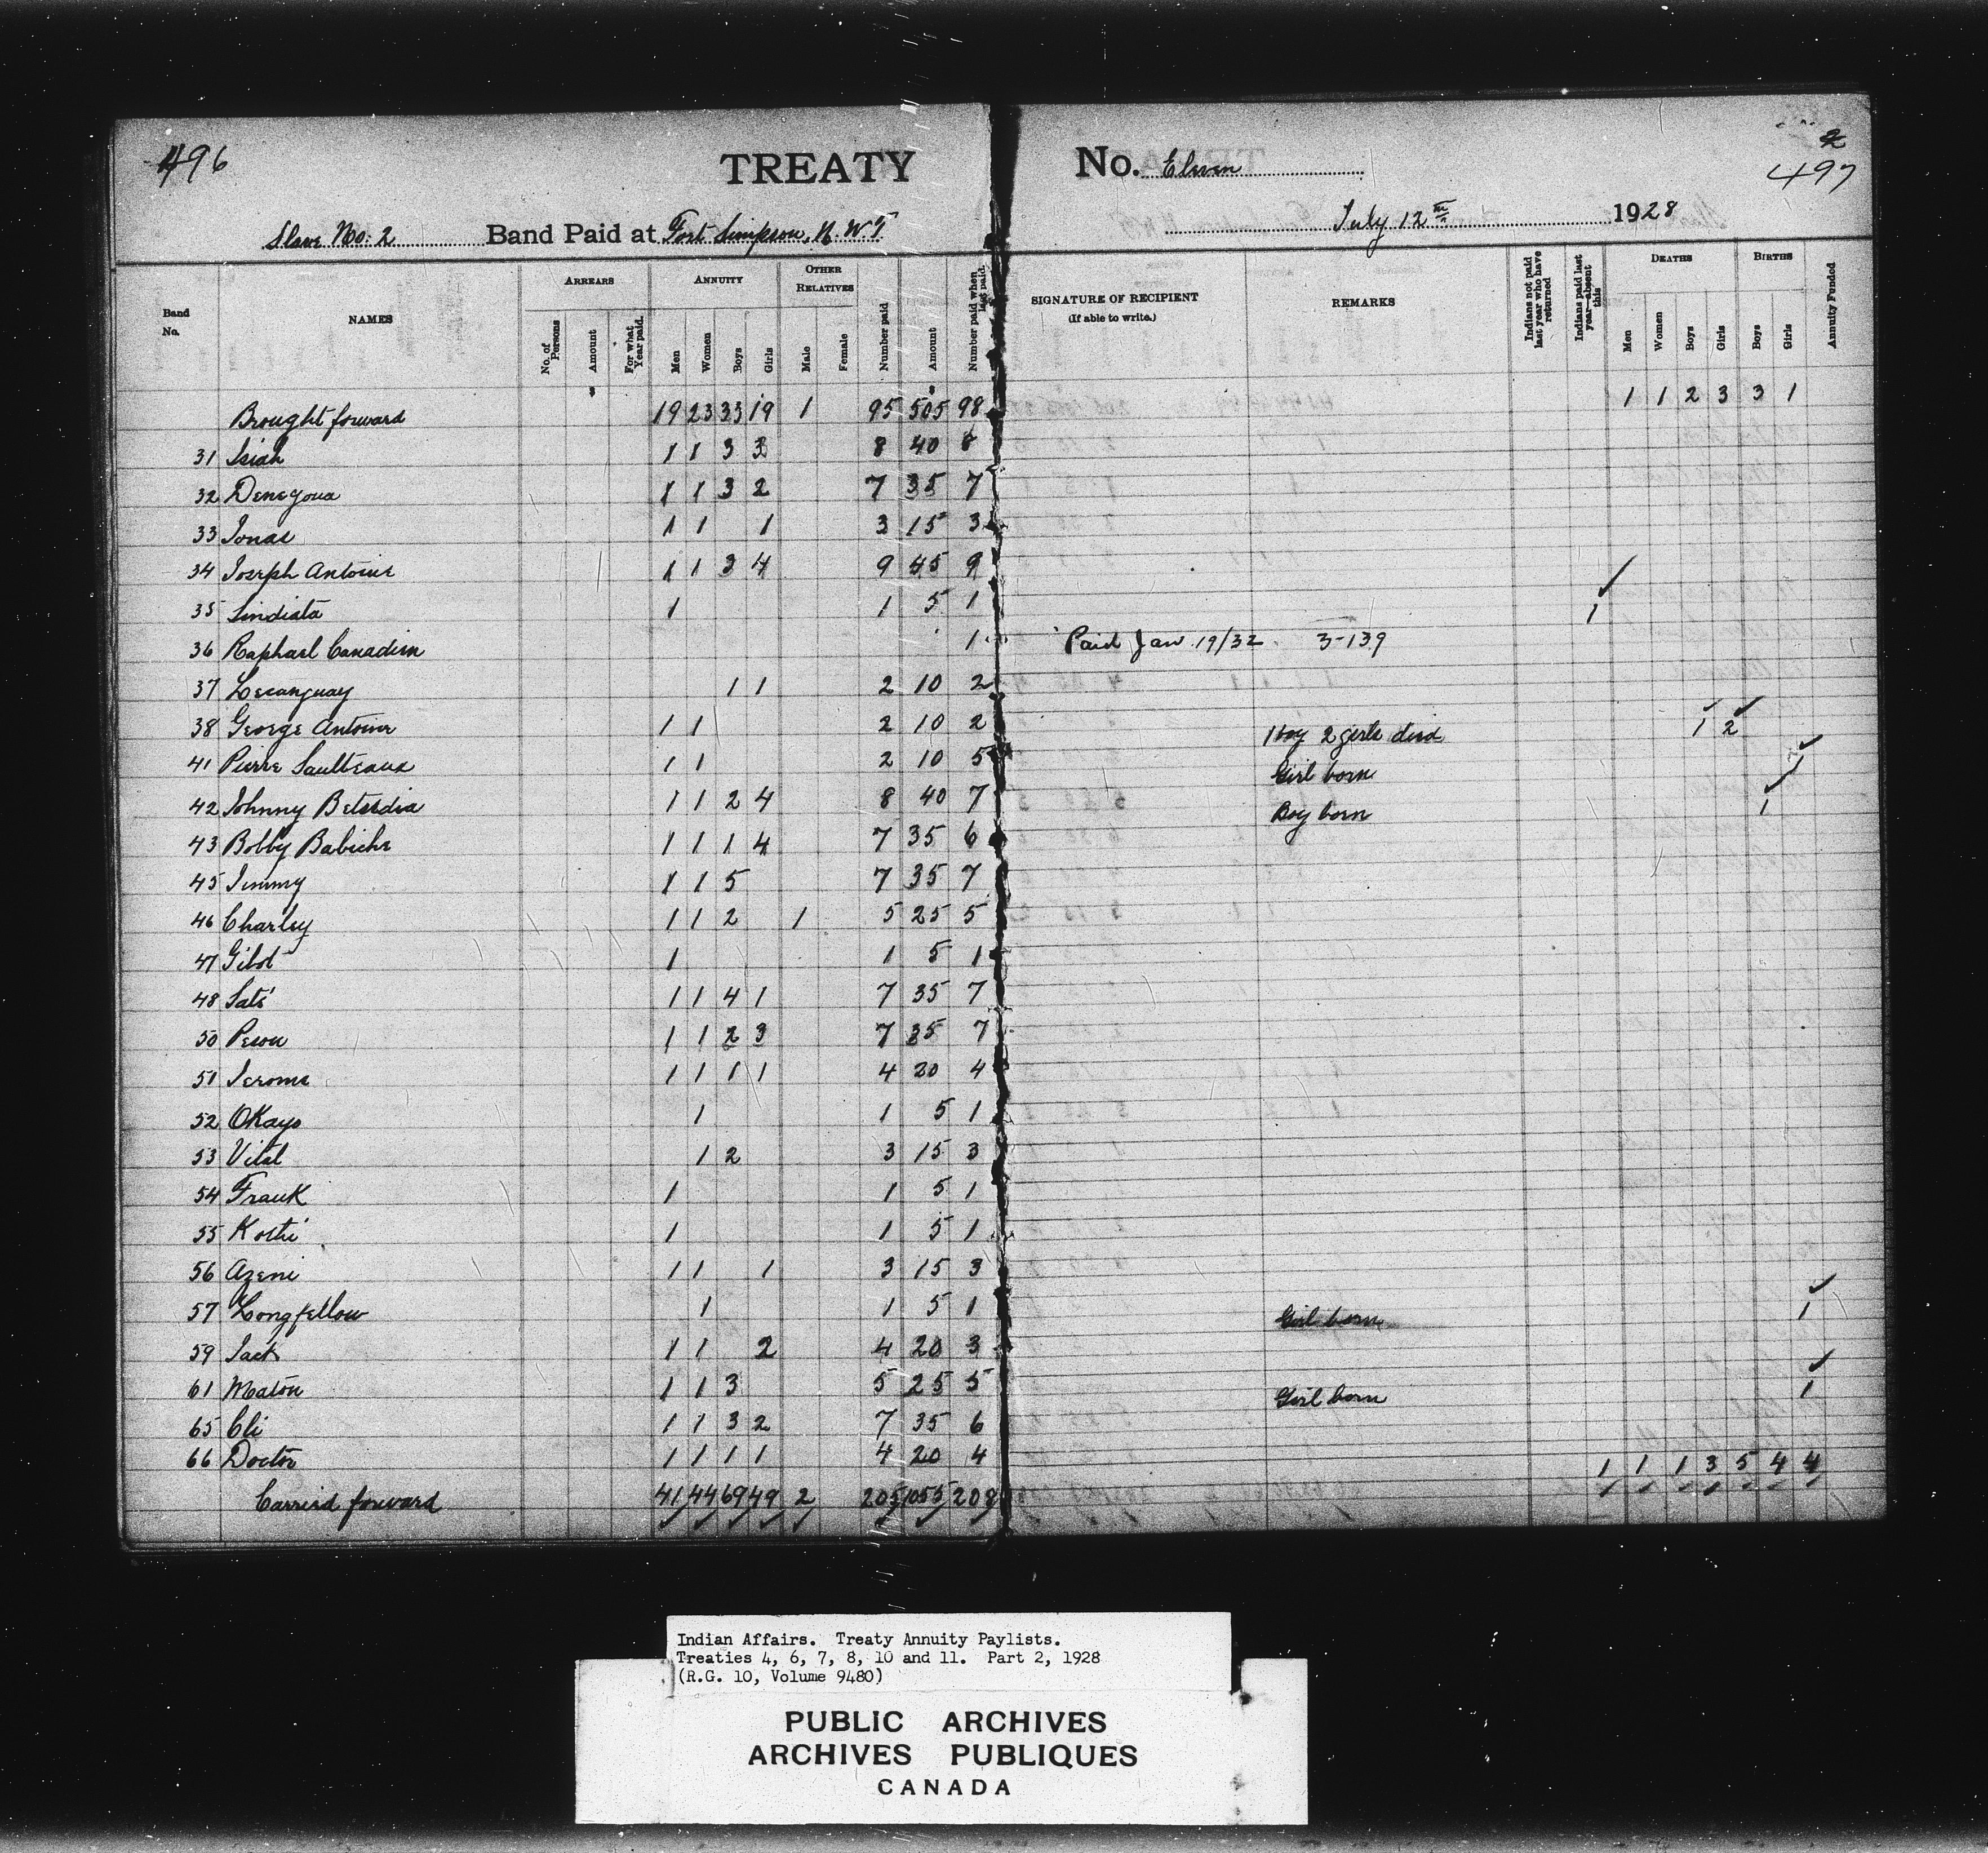 496
TREATY No. Eleven
2
497
Slave No. 2 Band Paid at Fort Simpson, N.W.T. July 12th 1928
Band No. NAMES ARREARS No. of Persons Amount For what Year paid. ANNUITY Men Women Boys Girls OTHER RELATIVES Male Female Number paid Amount Number paid when last paid. SIGNATURE OF RECIPIENT (If able to write.) REMARKS Indians not paid last year who have returned Indians paid last year—absent this DEATHS Men Women Boys Girls BIRTHS Boys Girls Annuity Funded
$ $
Brought forward 19 23 33 19 1 95 505 98 1 1 2 3 3 1
31 Isiah 1 1 3 3 8 40 8
32 Denegoua 1 1 3 2 7 35 7
33 Jonas 1 1 1 3 15 3
34 Joseph Antoine 1 1 3 4 9 45 9
35 Sindiata 1 1 5 1
36 Raphael Canadien 1 Paid Jan 19/32 3-139 1
37 Lecanguay 1 1 2 10 2
38 George Antoine 1 1 2 10 2
41 Pierre Saulteaux 1 1 2 10 5 1 boy 2 girls died 1 2
42 Johnny Betsedia 1 1 2 4 8 40 7 Girl born 1
43 Bobby Babiche 1 1 1 4 7 35 6 Boy born 1
45 Jimmy 1 1 5 7 35 7
46 Charley 1 1 2 1 5 25 5
47 Gibot 1 1 5 1
48 Saté 1 1 4 1 7 35 7
50 Peson 1 1 2 3 7 35 7
51 Jerome 1 1 1 1 4 20 4
52 Okayo 1 1 5 1
53 Vital 1 2 3 15 3
54 Frank 1 1 5 1
55 Kothi 1 1 5 1
56 Azeni 1 1 1 3 15 3
57 Longfellow 1 1 5 1
59 Jack 1 1 2 4 20 3 Girl born 1
61 Maton 1 1 3 5 25 5
65 Cli 1 1 3 2 7 35 6 Girl born 1
66 Doctor 1 1 1 1 4 20 4
Carried forward 41 44 69 49 2 205 1055 208 1 1 1 3 5 4 4
Indian Affairs. Treaty Annuity Paylists.
Treaties 4, 6, 7, 8, 10 and 11. Part 2, 1928
(R.G. 10, Volume 9480)
PUBLIC ARCHIVES
ARCHIVES PUBLIQUES
CANADA